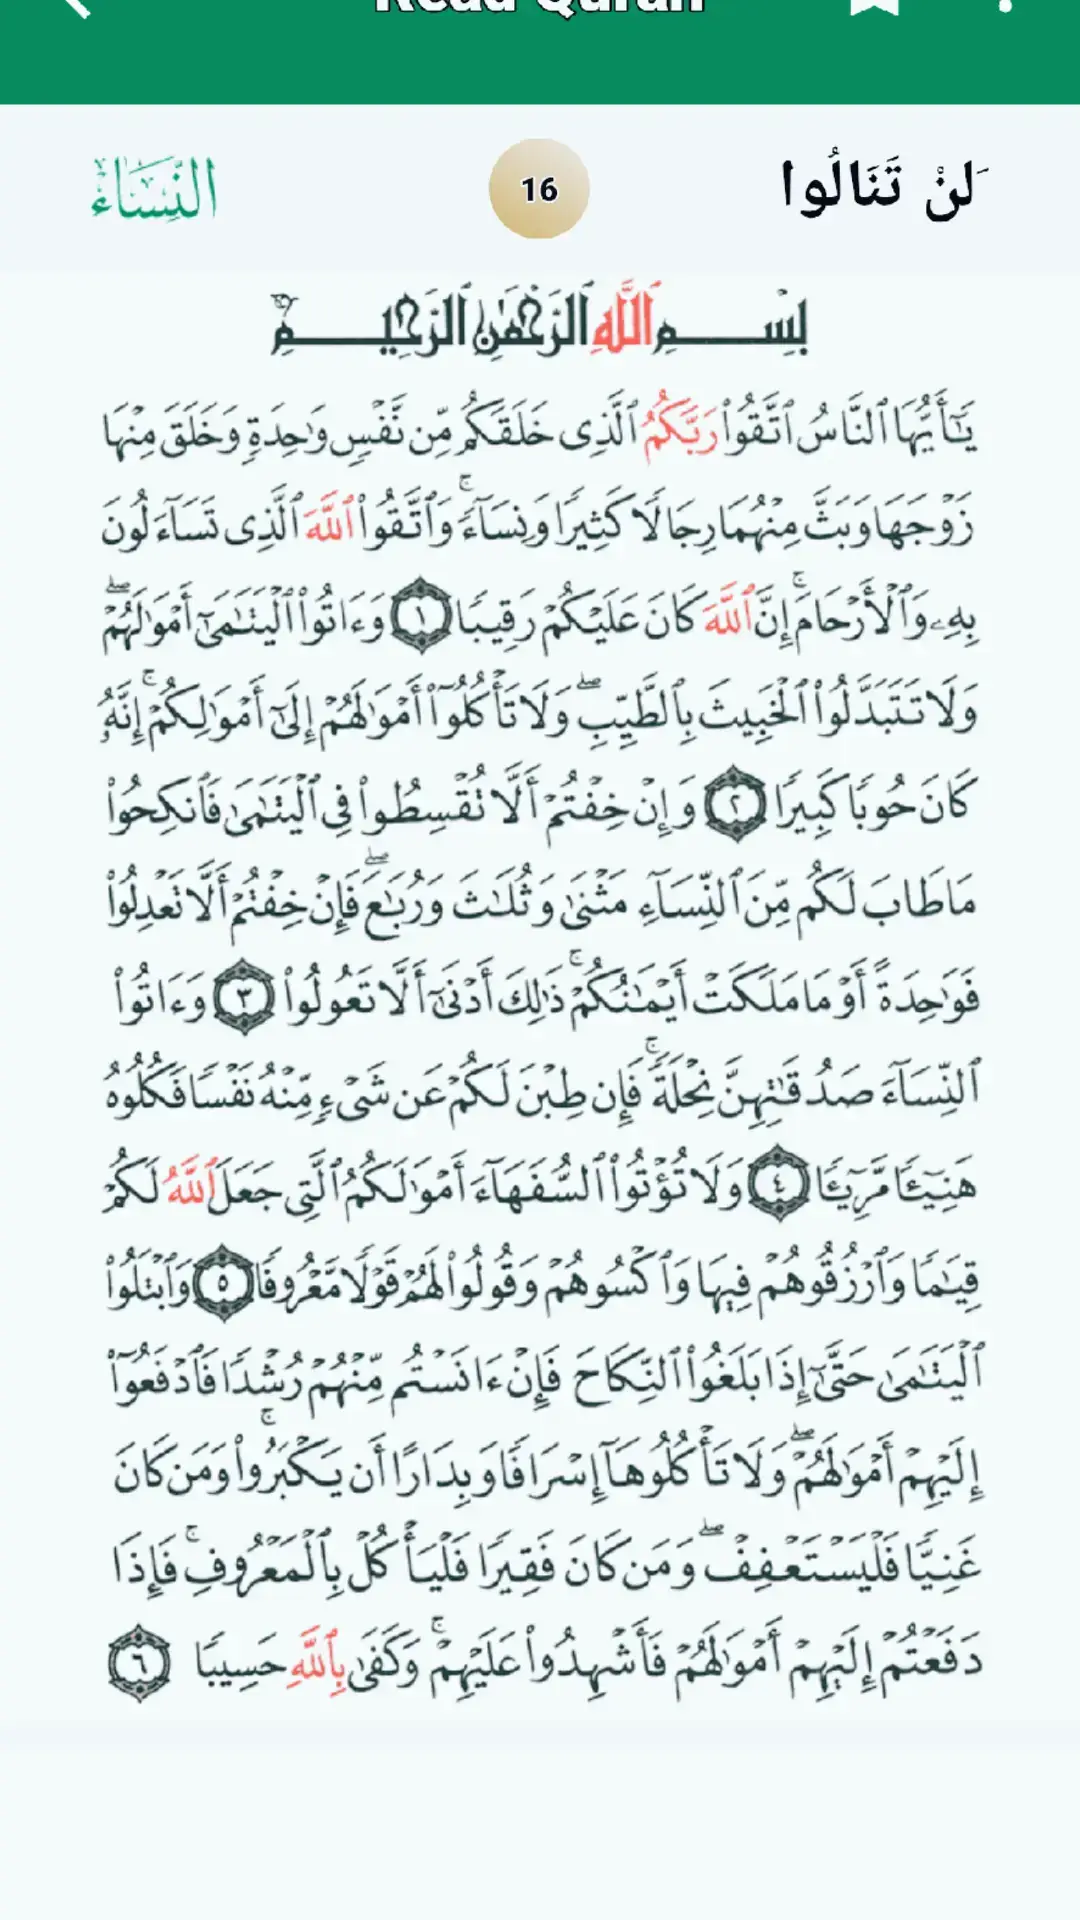 Read Quran
لَنْ تَنَالُوا
16
النِّسَاءُ
بِسْمِ ٱللَّهِ ٱلرَّحْمَٰنِ ٱلرَّحِيمِ
يَٰٓأَيُّهَا ٱلنَّاسُ ٱتَّقُوا۟ رَبَّكُمُ ٱلَّذِى خَلَقَكُم مِّن نَّفْسٍ وَٰحِدَةٍ وَخَلَقَ مِنْهَا
زَوْجَهَا وَبَثَّ مِنْهُمَا رِجَالًا كَثِيرًا وَنِسَآءً ۚ وَٱتَّقُوا۟ ٱللَّهَ ٱلَّذِى تَسَآءَلُونَ
بِهِۦ وَٱلْأَرْحَامَ ۚ إِنَّ ٱللَّهَ كَانَ عَلَيْكُمْ رَقِيبًا ١ وَءَاتُوا۟ ٱلْيَتَٰمَىٰٓ أَمْوَٰلَهُمْ ۖ
وَلَا تَتَبَدَّلُوا۟ ٱلْخَبِيثَ بِٱلطَّيِّبِ ۖ وَلَا تَأْكُلُوٓا۟ أَمْوَٰلَهُمْ إِلَىٰٓ أَمْوَٰلِكُمْ ۚ إِنَّهُۥ
كَانَ حُوبًا كَبِيرًا ٢ وَإِنْ خِفْتُمْ أَلَّا تُقْسِطُوا۟ فِى ٱلْيَتَٰمَىٰ فَٱنكِحُوا۟
مَا طَابَ لَكُم مِّنَ ٱلنِّسَآءِ مَثْنَىٰ وَثُلَٰثَ وَرُبَٰعَ ۖ فَإِنْ خِفْتُمْ أَلَّا تَعْدِلُوا۟
فَوَٰحِدَةً أَوْ مَا مَلَكَتْ أَيْمَٰنُكُمْ ۚ ذَٰلِكَ أَدْنَىٰٓ أَلَّا تَعُولُوا۟ ٣ وَءَاتُوا۟
ٱلنِّسَآءَ صَدُقَٰتِهِنَّ نِحْلَةً ۚ فَإِن طِبْنَ لَكُمْ عَن شَىْءٍ مِّنْهُ نَفْسًا فَكُلُوهُ
هَنِيٓـًٔا مَّرِيٓـًٔا ٤ وَلَا تُؤْتُوا۟ ٱلسُّفَهَآءَ أَمْوَٰلَكُمُ ٱلَّتِى جَعَلَ ٱللَّهُ لَكُمْ
قِيَٰمًا وَٱرْزُقُوهُمْ فِيهَا وَٱكْسُوهُمْ وَقُولُوا۟ لَهُمْ قَوْلًا مَّعْرُوفًا ٥ وَٱبْتَلُوا۟
ٱلْيَتَٰمَىٰ حَتَّىٰٓ إِذَا بَلَغُوا۟ ٱلنِّكَاحَ فَإِنْ ءَانَسْتُم مِّنْهُمْ رُشْدًا فَٱدْفَعُوٓا۟
إِلَيْهِمْ أَمْوَٰلَهُمْ ۖ وَلَا تَأْكُلُوهَآ إِسْرَافًا وَبِدَارًا أَن يَكْبَرُوا۟ ۚ وَمَن كَانَ
غَنِيًّا فَلْيَسْتَعْفِفْ ۖ وَمَن كَانَ فَقِيرًا فَلْيَأْكُلْ بِٱلْمَعْرُوفِ ۚ فَإِذَا
دَفَعْتُمْ إِلَيْهِمْ أَمْوَٰلَهُمْ فَأَشْهِدُوا۟ عَلَيْهِمْ ۚ وَكَفَىٰ بِٱللَّهِ حَسِيبًا ٦